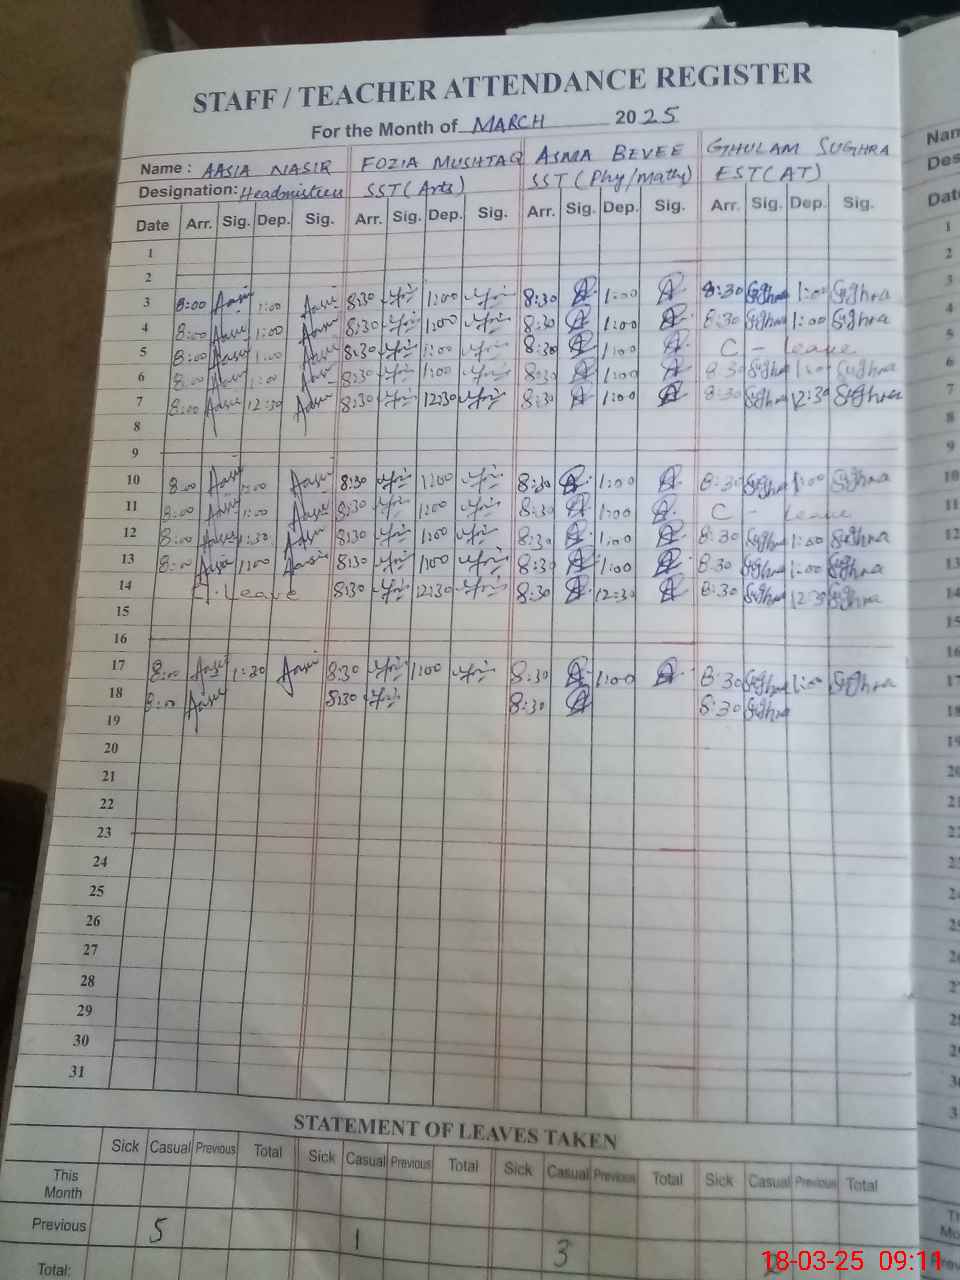 STAFF / TEACHER ATTENDANCE REGISTER
For the Month of MARCH 2025
Name : AASIA NASIR FOZIA MUSHTAQ ASMA BEVEE GHULAM SUGHRA
Designation: Headmistress SST (Arts) SST (Phy/Math) EST (AT)
Date Arr. Sig. Dep. Sig. Arr. Sig. Dep. Sig. Arr. Sig. Dep. Sig. Arr. Sig. Dep. Sig.
1
2
3 8:00 Aasia 1:00 Aasia 8:30 1:00 8:30 1:00 8:30 Sughra 1:00 Sughra
4 8:00 Aasia 1:00 Aasia 8:30 1:00 8:30 1:00 8:30 Sughra 1:00 Sughra
5 8:00 Aasia 1:00 Aasia 8:30 1:00 8:30 1:00 C - leave
6 8:00 Aasia 1:00 Aasia 8:30 1:00 8:30 1:00 8:30 Sughra 1:00 Sughra
7 8:00 Aasia 12:30 Aasia 8:30 12:30 8:30 1:00 8:30 Sughra 12:30 Sughra
8
9
10 8:00 Aasia 1:00 Aasia 8:30 1:00 8:30 1:00 8:30 Sughra 1:00 Sughra
11 8:00 Aasia 1:00 Aasia 8:30 1:00 8:30 1:00 C - leave
12 8:00 Aasia 1:30 Aasia 8:30 1:00 8:30 1:00 8:30 Sughra 1:00 Sughra
13 8:00 Aasia 1:00 Aasia 8:30 1:00 8:30 1:00 8:30 Sughra 1:00 Sughra
14 Leave 8:30 12:30 8:30 12:30 8:30 Sughra 12:30 Sughra
15
16
17 8:00 Aasia 1:30 Aasia 8:30 1:00 8:30 1:00 8:30 Sughra 1:00 Sughra
18 8:00 Aasia 8:30 8:30 8:30 Sughra
19
20
21
22
23
24
25
26
27
28
29
30
31
STATEMENT OF LEAVES TAKEN
Sick Casual Previous Total Sick Casual Previous Total Sick Casual Previous Total Sick Casual Previous Total
This Month
Previous 5 1 3
Total:
18-03-25 09:11